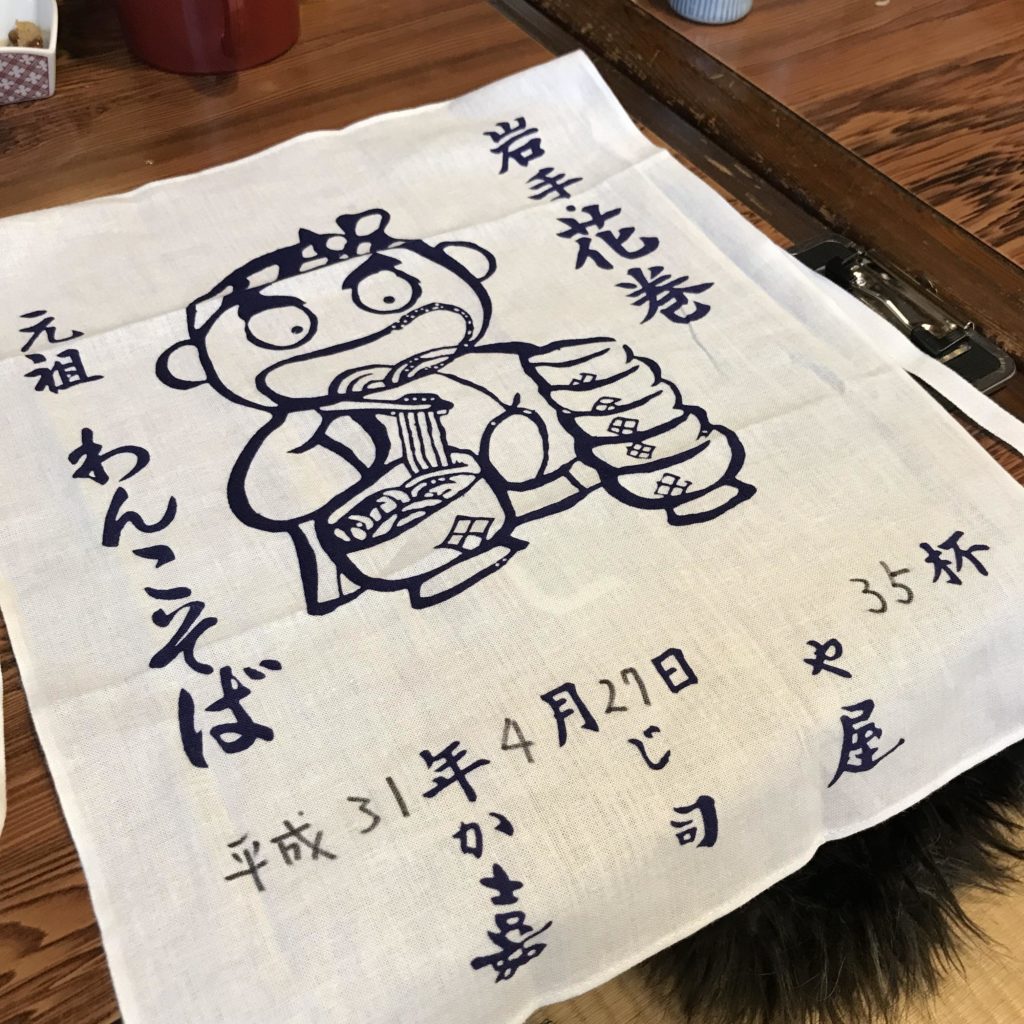 岩手・花巻
元祖
わんこそば
35杯
平成31年4月27日
かじや
嘉司屋